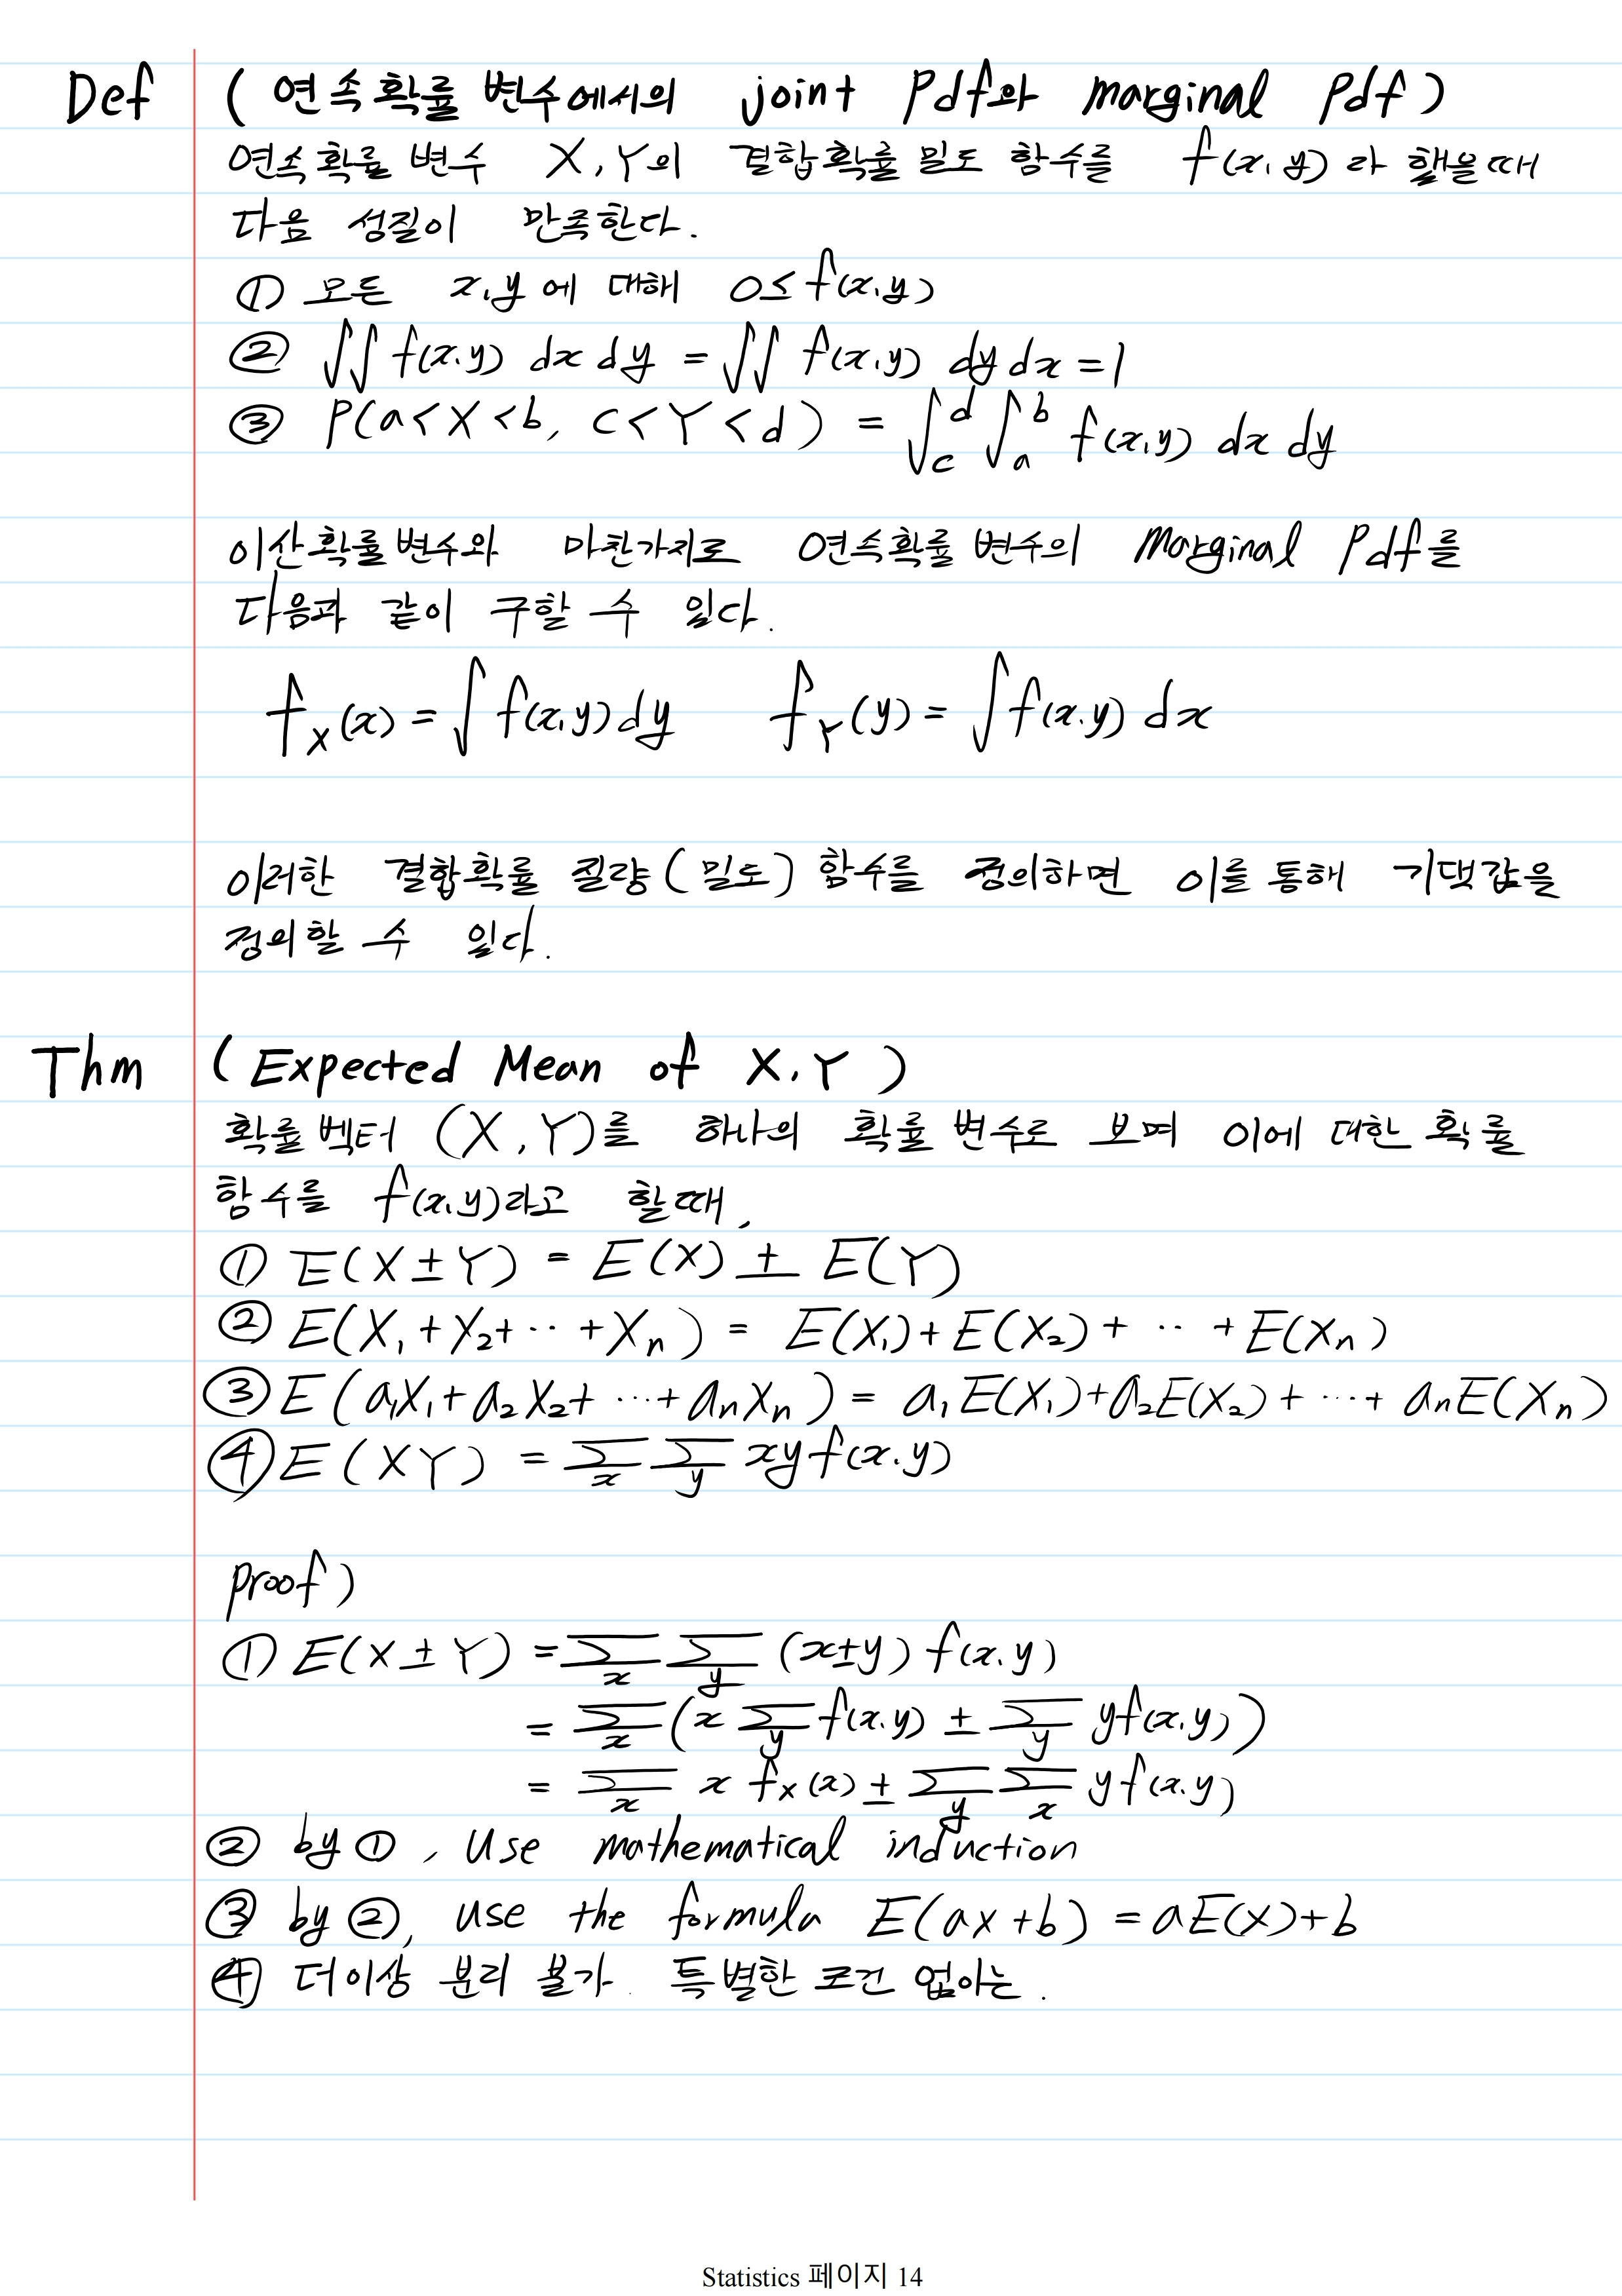 Def (연속확률 변수에서의 joint Pdf와 marginal Pdf)
연속확률 변수 X, Y의 결합확률 밀도 함수를 f(x, y) 라 했을때
다음 성질이 만족한다.
① 모든 x,y 에 대해 0≤ f(x,y)
② ∫∫ f(x,y) dx dy = ∫∫ f(x,y) dy dx = 1
③ P(a<X<b, c<Y<d) = ∫_c^d ∫_a^b f(x,y) dx dy
이산확률변수와 마찬가지로 연속확률변수의 Marginal Pdf를
다음과 같이 구할 수 있다.
f_X(x) = ∫ f(x,y) dy f_Y(y) = ∫ f(x,y) dx
이러한 결합확률 질량(밀도) 함수를 정의하면 이를 통해 기댓값을
정의할 수 있다.
Thm (Expected Mean of X,Y)
확률 벡터 (X, Y)를 하나의 확률 변수로 보며 이에 대한 확률
함수를 f(x,y)라고 할때,
① E(X±Y) = E(X) ± E(Y)
② E(X₁+X₂+⋯+Xₙ) = E(X₁)+E(X₂)+⋯+E(Xₙ)
③ E(a₁X₁+a₂X₂+⋯+aₙXₙ) = a₁E(X₁)+a₂E(X₂)+⋯+aₙE(Xₙ)
④ E(XY) = Σ_x Σ_y xy f(x,y)
proof)
① E(X±Y) = Σ_x Σ_y (x±y) f(x,y)
= Σ_x (x Σ_y f(x,y) ± Σ_y y f(x,y))
= Σ_x x f_X(x) ± Σ_y Σ_x y f(x,y)
② by ①, Use mathematical induction
③ by ②, use the formula E(ax+b) = aE(X)+b
④ 더이상 분리 불가. 특별한 조건 없이는.
Statistics 페이지 14